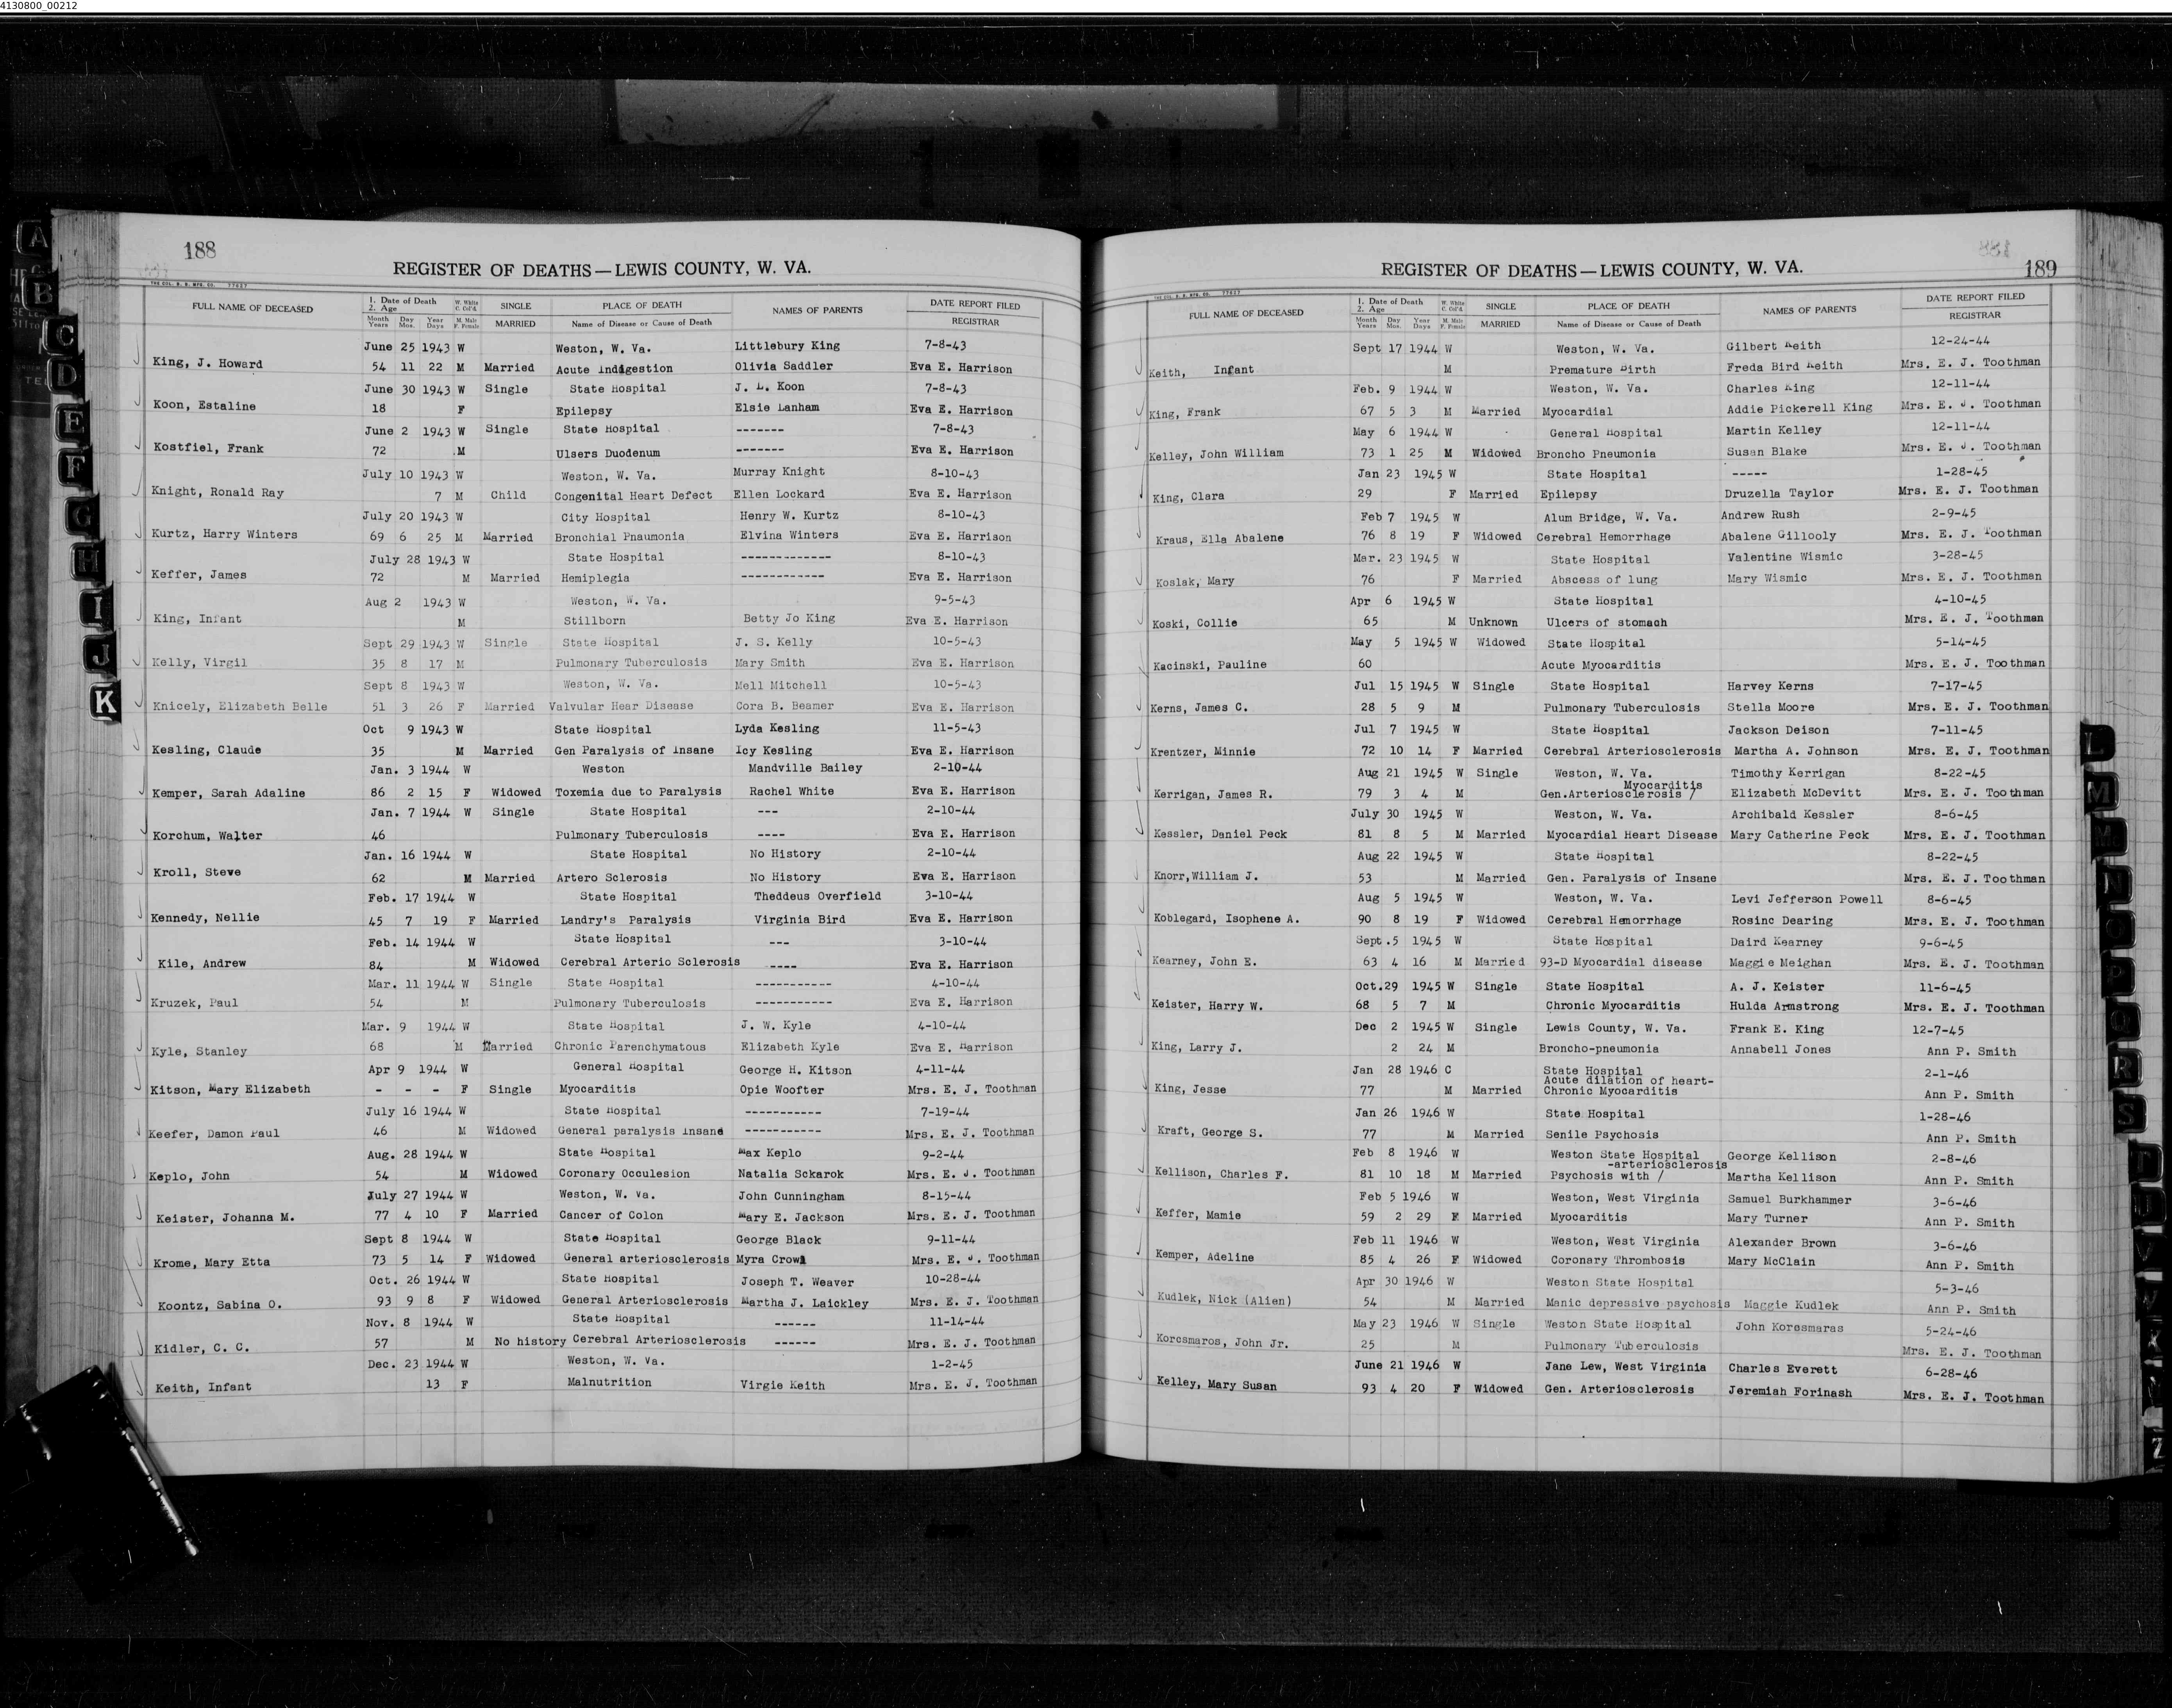 4130800_00212
188
REGISTER OF DEATHS—LEWIS COUNTY, W. VA.
FULL NAME OF DECEASED 1. Date of Death 2. Age W. White C. Col'd SINGLE PLACE OF DEATH NAMES OF PARENTS DATE REPORT FILED
Month Years Day Mos. Year Days M. Male F. Female MARRIED Name of Disease or Cause of Death REGISTRAR
June 25 1943 W Weston, W. Va. Littlebury King 7-8-43
King, J. Howard 54 11 22 M Married Acute Indigestion Olivia Saddler Eva E. Harrison
June 30 1943 W Single State Hospital J. L. Koon 7-8-43
Koon, Estaline 18 F Epilepsy Elsie Lanham Eva E. Harrison
June 2 1943 W Single State Hospital ------- 7-8-43
Kostfiel, Frank 72 M Ulsers Duodenum ------- Eva E. Harrison
July 10 1943 W Weston, W. Va. Murray Knight 8-10-43
Knight, Ronald Ray 7 M Child Congenital Heart Defect Ellen Lockard Eva E. Harrison
July 20 1943 W City Hospital Henry W. Kurtz 8-10-43
Kurtz, Harry Winters 69 6 25 M Married Bronchial Pnaumonia Elvina Winters Eva E. Harrison
July 28 1943 W State Hospital ------------- 8-10-43
Keffer, James 72 M Married Hemiplegia ------------ Eva E. Harrison
Aug 2 1943 W Weston, W. Va. 9-5-43
King, Infant M Stillborn Betty Jo King Eva E. Harrison
Sept 29 1943 W Single State Hospital J. S. Kelly 10-5-43
Kelly, Virgil 35 8 17 M Pulmonary Tuberculosis Mary Smith Eva E. Harrison
Sept 8 1943 W Weston, W. Va. Mell Mitchell 10-5-43
Knicely, Elizabeth Belle 51 3 26 F Married Valvular Hear Disease Cora B. Beamer Eva E. Harrison
Oct 9 1943 W State Hospital Lyda Kesling 11-5-43
Kesling, Claude 35 M Married Gen Paralysis of Insane Icy Kesling Eva E. Harrison
Jan. 3 1944 W Weston Mandville Bailey 2-10-44
Kemper, Sarah Adaline 86 2 15 F Widowed Toxemia due to Paralysis Rachel White Eva E. Harrison
Jan. 7 1944 W Single State Hospital --- 2-10-44
Korchum, Walter 46 Pulmonary Tuberculosis ---- Eva E. Harrison
Jan. 16 1944 W State Hospital No History 2-10-44
Kroll, Steve 62 M Married Artero Sclerosis No History Eva E. Harrison
Feb. 17 1944 W State Hospital Theddeus Overfield 3-10-44
Kennedy, Nellie 45 7 19 F Married Landry's Paralysis Virginia Bird Eva E. Harrison
Feb. 14 1944 W State Hospital --- 3-10-44
Kile, Andrew 84 M Widowed Cerebral Arterio Sclerosis ---- Eva E. Harrison
Mar. 11 1944 W Single State Hospital ----------- 4-10-44
Kruzek, Paul 54 M Pulmonary Tuberculosis ----------- Eva E. Harrison
Mar. 9 1944 W State Hospital J. W. Kyle 4-10-44
Kyle, Stanley 68 M Married Chronic Parenchymatous Elizabeth Kyle Eva E. Harrison
Apr 9 1944 W General Hospital George H. Kitson 4-11-44
Kitson, Mary Elizabeth - - - F Single Myocarditis Opie Woofter Mrs. E. J. Toothman
July 16 1944 W State Hospital ----------- 7-19-44
Keefer, Damon Paul 46 M Widowed General paralysis Insane ----------- Mrs. E. J. Toothman
Aug. 28 1944 W State Hospital Max Keplo 9-2-44
Keplo, John 54 M Widowed Coronary Occulesion Natalia Sckarok Mrs. E. J. Toothman
July 27 1944 W Weston, W. Va. John Cunningham 8-15-44
Keister, Johanna M. 77 4 10 F Married Cancer of Colon Mary E. Jackson Mrs. E. J. Toothman
Sept 8 1944 W State Hospital George Black 9-11-44
Krome, Mary Etta 73 5 14 F Widowed General arteriosclerosis Myra Crow Mrs. E. J. Toothman
Oct. 26 1944 W State Hospital Joseph T. Weaver 10-28-44
Koontz, Sabina O. 93 9 8 F Widowed General Arteriosclerosis Martha J. Laickley Mrs. E. J. Toothman
Nov. 8 1944 W State Hospital ------ 11-14-44
Kidler, C. C. 57 M No history Cerebral Arteriosclerosis ------ Mrs. E. J. Toothman
Dec. 23 1944 W Weston, W. Va. 1-2-45
Keith, Infant 13 F Malnutrition Virgie Keith Mrs. E. J. Toothman
189
REGISTER OF DEATHS—LEWIS COUNTY, W. VA.
FULL NAME OF DECEASED 1. Date of Death 2. Age W. White C. Col'd SINGLE PLACE OF DEATH NAMES OF PARENTS DATE REPORT FILED
Month Years Day Mos. Year Days M. Male F. Female MARRIED Name of Disease or Cause of Death REGISTRAR
Sept 17 1944 W Weston, W. Va. Gilbert Keith 12-24-44
Keith, Infant M Premature Birth Freda Bird Keith Mrs. E. J. Toothman
Feb. 9 1944 W Weston, W. Va. Charles King 12-11-44
King, Frank 67 5 3 M Married Myocardial Addie Pickerell King Mrs. E. J. Toothman
May 6 1944 W General Hospital Martin Kelley 12-11-44
Kelley, John William 73 1 25 M Widowed Broncho Pneumonia Susan Blake Mrs. E. J. Toothman
Jan 23 1945 W State Hospital ----- 1-28-45
King, Clara 29 F Married Epilepsy Druzella Taylor Mrs. E. J. Toothman
Feb 7 1945 W Alum Bridge, W. Va. Andrew Rush 2-9-45
Kraus, Ella Abalene 76 8 19 F Widowed Cerebral Hemorrhage Abalene Gillooly Mrs. E. J. Toothman
Mar. 23 1945 W State Hospital Valentine Wismic 3-28-45
Koslak, Mary 76 F Married Abscess of lung Mary Wismic Mrs. E. J. Toothman
Apr 6 1945 W State Hospital 4-10-45
Koski, Collie 65 M Unknown Ulcers of stomach Mrs. E. J. Toothman
May 5 1945 W Widowed State Hospital 5-14-45
Kacinski, Pauline 60 Acute Myocarditis Mrs. E. J. Toothman
Jul 15 1945 W Single State Hospital Harvey Kerns 7-17-45
Kerns, James C. 28 5 9 M Pulmonary Tuberculosis Stella Moore Mrs. E. J. Toothman
Jul 7 1945 W State Hospital Jackson Deison 7-11-45
Krentzer, Minnie 72 10 14 F Married Cerebral Arteriosclerosis Martha A. Johnson Mrs. E. J. Toothman
Aug 21 1945 W Single Weston, W. Va. Timothy Kerrigan 8-22-45
Myocarditis
Kerrigan, James R. 79 3 4 M Gen.Arteriosclerosis / Elizabeth McDevitt Mrs. E. J. Toothman
July 30 1945 W Weston, W. Va. Archibald Kessler 8-6-45
Kessler, Daniel Peck 81 8 5 M Married Myocardial Heart Disease Mary Catherine Peck Mrs. E. J. Toothman
Aug 22 1945 W State Hospital 8-22-45
Knorr,William J. 53 M Married Gen. Paralysis of Insane Mrs. E. J. Toothman
Aug 5 1945 W Weston, W. Va. Levi Jefferson Powell 8-6-45
Koblegard, Isophene A. 90 8 19 F Widowed Cerebral Hemorrhage Rosinc Dearing Mrs. E. J. Toothman
Sept.5 1945 W State Hospital Daird Kearney 9-6-45
Kearney, John E. 63 4 16 M Married 93-D Myocardial disease Maggie Meighan Mrs. E. J. Toothman
Oct.29 1945 W Single State Hospital A. J. Keister 11-6-45
Keister, Harry W. 68 5 7 M Chronic Myocarditis Hulda Armstrong Mrs. E. J. Toothman
Dec 2 1945 W Single Lewis County, W. Va. Frank E. King 12-7-45
King, Larry J. 2 24 M Broncho-pneumonia Annabell Jones Ann P. Smith
Jan 28 1946 C State Hospital 2-1-46
Acute dilation of heart-
King, Jesse 77 M Married Chronic Myocarditis Ann P. Smith
Jan 26 1946 W State Hospital 1-28-46
Kraft, George S. 77 M Married Senile Psychosis Ann P. Smith
Feb 8 1946 W Weston State Hospital George Kellison 2-8-46
-arteriosclerosis
Kellison, Charles F. 81 10 18 M Married Psychosis with / Martha Kellison Ann P. Smith
Feb 5 1946 W Weston, West Virginia Samuel Burkhammer 3-6-46
Keffer, Mamie 59 2 29 F Married Myocarditis Mary Turner Ann P. Smith
Feb 11 1946 W Weston, West Virginia Alexander Brown 3-6-46
Kemper, Adeline 85 4 26 F Widowed Coronary Thrombosis Mary McClain Ann P. Smith
Apr 30 1946 W Weston State Hospital 5-3-46
Kudlek, Nick (Alien) 54 M Married Manic depressive psychosis Maggie Kudlek Ann P. Smith
May 23 1946 W Single Weston State Hospital John Korcsmaras 5-24-46
Korcsmaros, John Jr. 25 M Pulmonary Tuberculosis Mrs. E. J. Toothman
June 21 1946 W Jane Lew, West Virginia Charles Everett 6-28-46
Kelley, Mary Susan 93 4 20 F Widowed Gen. Arteriosclerosis Jeremiah Forinash Mrs. E. J. Toothman
A
B
C
D
E
F
G
H
I
J
K
L
M
N
O
P
Q
R
S